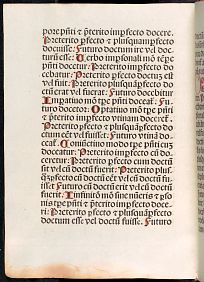 pore pñti ⁊ p̄terito impfecto docere.
Preterito pfecto ⁊ plusquamp̄fecto
docuisse: Futuro doctum ire vel doc-
turū esse: Verbo impsonali mō tēpe
pñti docetur: Preterito impfecto do
cebatur: Preterito pfecto doctus est
vel fuit. Preterito plusquāpfecto do
ctū erat vel fuerat: Futuro docebitur
Impatiuo mō tp̄e pñti doceat̄. Fu
turo docetor: Optatiuo mō tp̄e pñti
⁊ p̄terito impfecto vtinam docere̅t.
Preterito pfecto ⁊ plusquāpfecto do
ctum eēt vel fuisset: Futuro vtinā do
ceat̄. Coniūctiuo modo tp̄e pñti cuȝ
doceatur: Preterito impfecto cū do-
ceretur: Preterito pfecto cum doctū
sit vel doctū fuerit: Preterito plus-
qȝpfecto cū doctū eēt vel cū doctū fu-
isset Futuro cū doctū erit vel cū doctū
fuerit: Infinitō mō sine nūeris ⁊ pso
nis tp̄e pñti ⁊ p̄terito impfecto doce-
ri: Preterito pfecto ⁊ plusquāpfecto
doctum esse vel doctū fuisse. Futuro